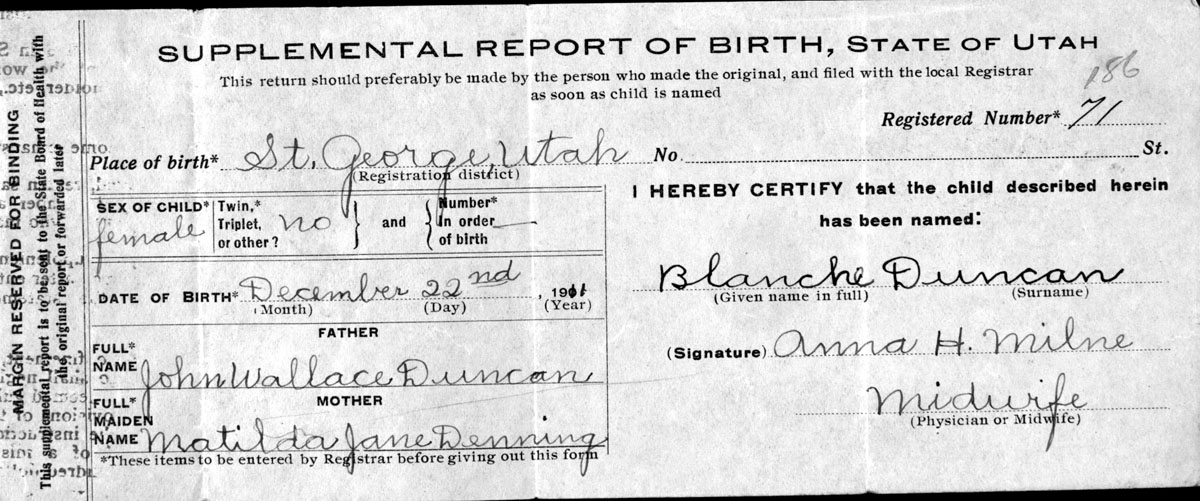 SUPPLEMENTAL REPORT OF BIRTH, STATE OF UTAH
This return should preferably be made by the person who made the original, and filed with the local Registrar
as soon as child is named
186
Registered Number* 71
Place of birth* St. George, Utah No. St.
(Registration district)
SEX OF CHILD* female
Twin,* Triplet, or other? no
and
Number* in order of birth
DATE OF BIRTH* December 22nd, 1911
(Month) (Day) (Year)
FATHER
FULL* NAME John Wallace Duncan
MOTHER
FULL* MAIDEN NAME Matilda Jane Denning
*These items to be entered by Registrar before giving out this form
I HEREBY CERTIFY that the child described herein
has been named:
Blanche Duncan
(Given name in full) (Surname)
(Signature) Anna H. Milne
Midwife
(Physician or Midwife)
MARGIN RESERVED FOR BINDING
This supplemental report is to be sent to the State Board of Health with
the original report or forwarded later